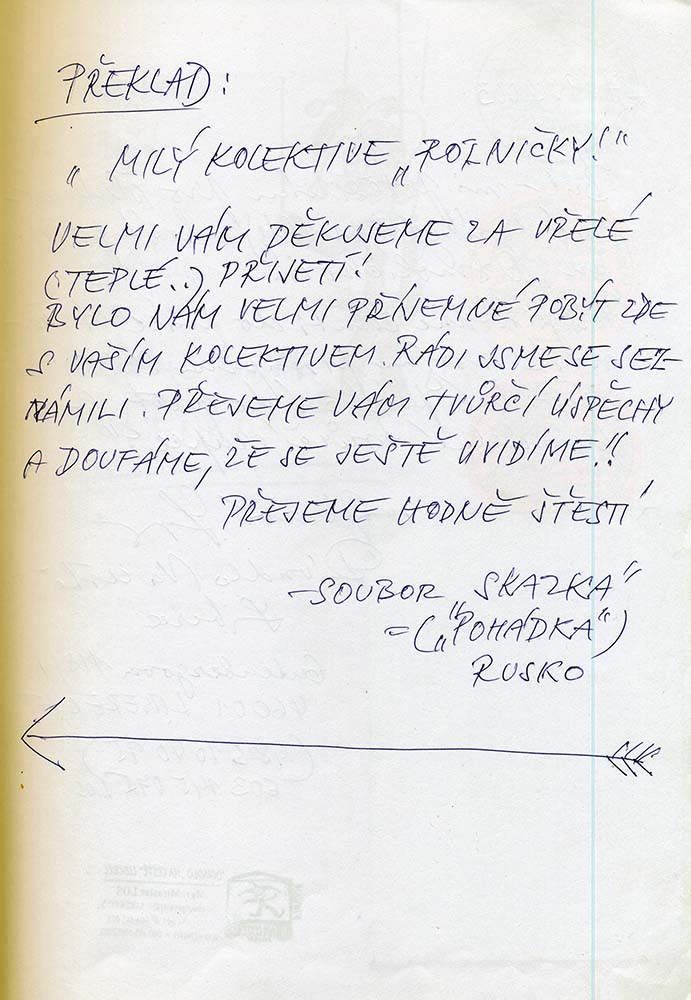 PŘEKLAD:
"MILÝ KOLEKTIVE „ROLNIČKY!“
VELMI VÁM DĚKUJEME ZA VŘELÉ
(TEPLÉ..) PŘIJETÍ!
BYLO NÁM VELMI PŘÍJEMNÉ POBÝT ZDE
S VAŠÍM KOLEKTIVEM. RÁDI JSME SE SEZ-
NÁMILI. PŘEJEME VÁM TVŮRČÍ ÚSPĚCHY
A DOUFÁME, ŽE SE JEŠTĚ UVIDÍME!!
PŘEJEME HODNĚ ŠTĚSTÍ
-SOUBOR „SKAZKA“
=(„POHÁDKA“)
RUSKO